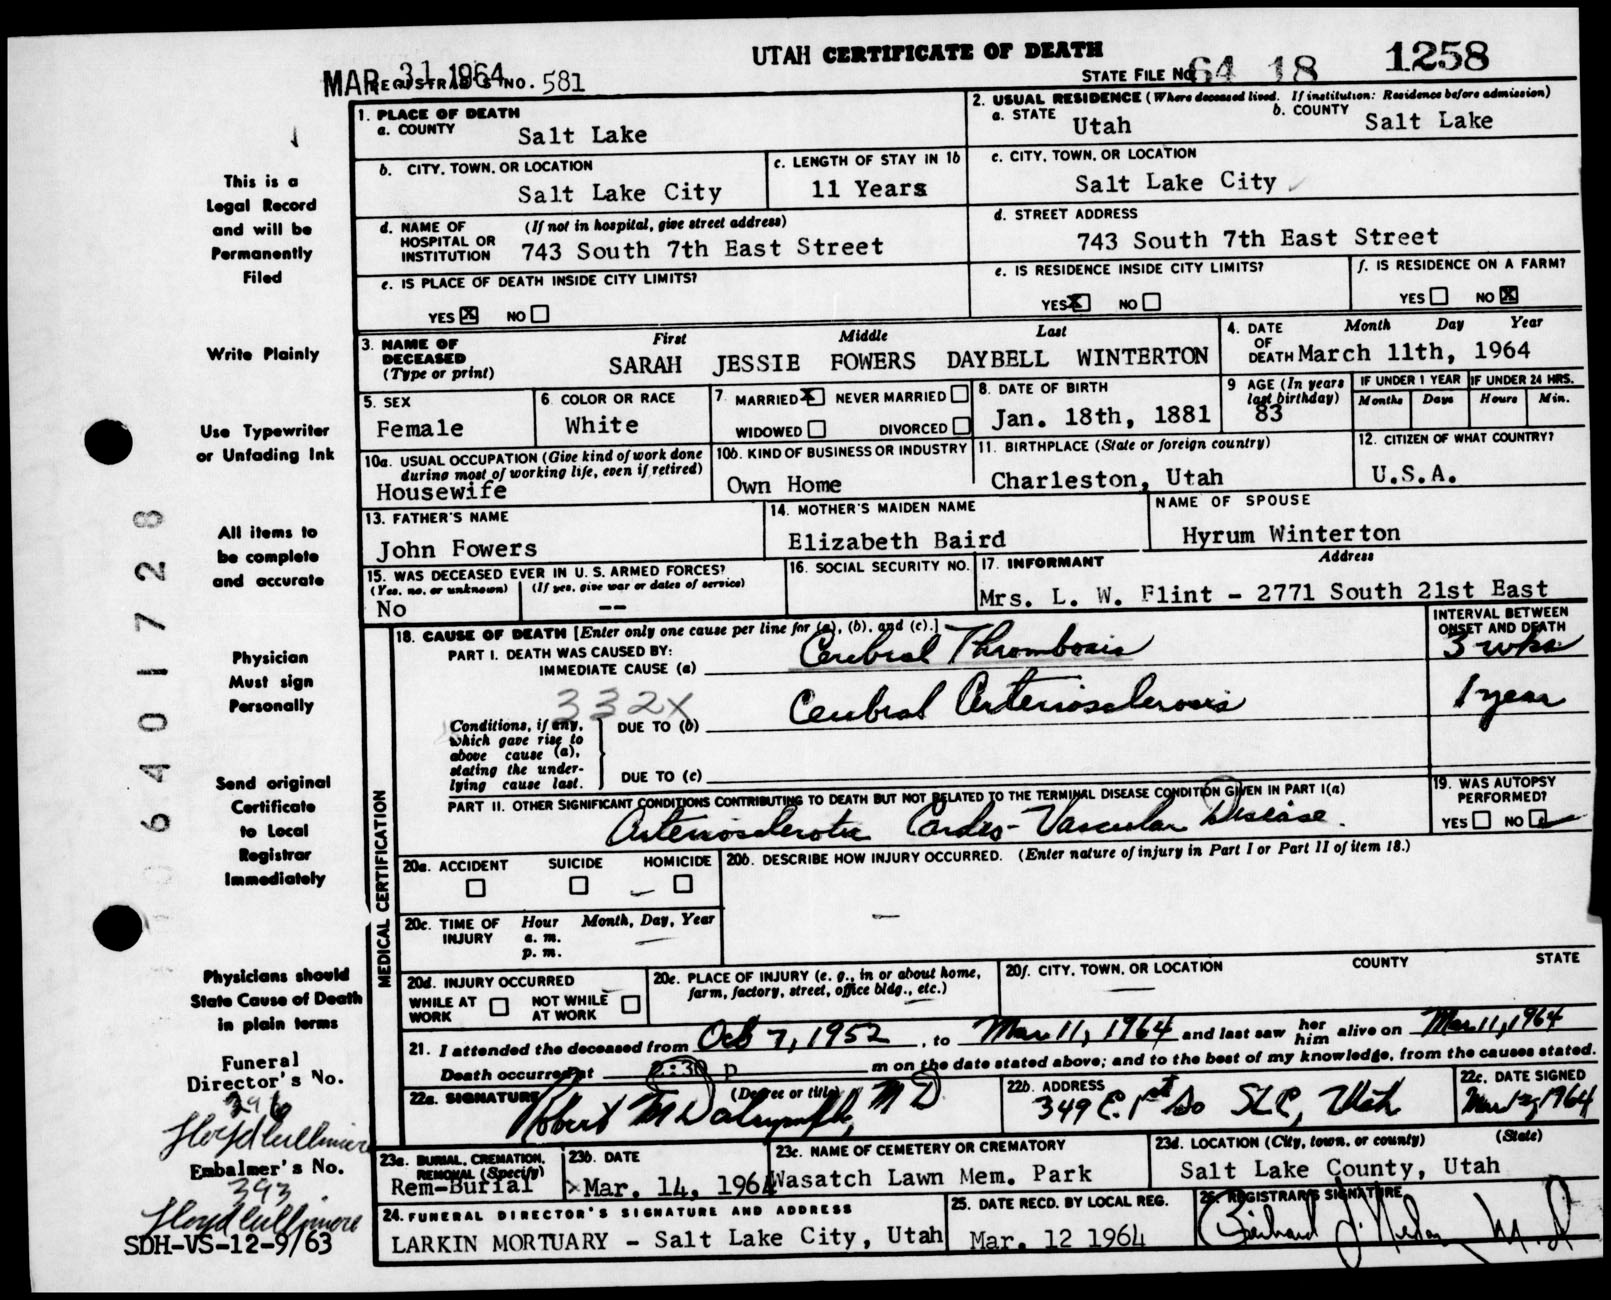 UTAH CERTIFICATE OF DEATH
MAR 31 1964
REGISTRAR'S NO. 581
STATE FILE NO. 64 18 1258
1. PLACE OF DEATH
a. COUNTY Salt Lake
2. USUAL RESIDENCE (Where deceased lived. If institution: Residence before admission)
a. STATE Utah b. COUNTY Salt Lake
b. CITY, TOWN, OR LOCATION Salt Lake City
c. LENGTH OF STAY IN 1b 11 Years
c. CITY, TOWN, OR LOCATION Salt Lake City
d. NAME OF HOSPITAL OR INSTITUTION (If not in hospital, give street address) 743 South 7th East Street
d. STREET ADDRESS 743 South 7th East Street
e. IS PLACE OF DEATH INSIDE CITY LIMITS?
YES X NO
e. IS RESIDENCE INSIDE CITY LIMITS?
YES X NO
f. IS RESIDENCE ON A FARM?
YES NO X
3. NAME OF DECEASED (Type or print)
First Middle Last
SARAH JESSIE FOWERS DAYBELL WINTERTON
4. DATE OF DEATH Month Day Year
March 11th, 1964
5. SEX Female
6. COLOR OR RACE White
7. MARRIED X NEVER MARRIED
WIDOWED DIVORCED
8. DATE OF BIRTH Jan. 18th, 1881
9. AGE (In years last birthday) 83
IF UNDER 1 YEAR Months Days
IF UNDER 24 HRS. Hours Min.
10a. USUAL OCCUPATION (Give kind of work done during most of working life, even if retired) Housewife
10b. KIND OF BUSINESS OR INDUSTRY Own Home
11. BIRTHPLACE (State or foreign country) Charleston, Utah
12. CITIZEN OF WHAT COUNTRY? U.S.A.
13. FATHER'S NAME John Fowers
14. MOTHER'S MAIDEN NAME Elizabeth Baird
NAME OF SPOUSE Hyrum Winterton
15. WAS DECEASED EVER IN U. S. ARMED FORCES?
(Yes, no, or unknown) (If yes, give war or dates of service)
No --
16. SOCIAL SECURITY NO.
17. INFORMANT Address
Mrs. L. W. Flint - 2771 South 21st East
MEDICAL CERTIFICATION
18. CAUSE OF DEATH [Enter only one cause per line for (a), (b), and (c).]
INTERVAL BETWEEN ONSET AND DEATH
PART I. DEATH WAS CAUSED BY:
IMMEDIATE CAUSE (a) Cerebral Thrombosis 3 wks
332X
Conditions, if any, which gave rise to above cause (a), stating the underlying cause last.
DUE TO (b) Cerebral Arteriosclerosis 1 year
DUE TO (c)
PART II. OTHER SIGNIFICANT CONDITIONS CONTRIBUTING TO DEATH BUT NOT RELATED TO THE TERMINAL DISEASE CONDITION GIVEN IN PART I(a)
Arteriosclerotic Cardio-Vascular Disease.
19. WAS AUTOPSY PERFORMED?
YES NO
20a. ACCIDENT SUICIDE HOMICIDE
20b. DESCRIBE HOW INJURY OCCURRED. (Enter nature of injury in Part I or Part II of item 18.)
20c. TIME OF INJURY Hour Month, Day, Year
a. m.
p. m.
20d. INJURY OCCURRED
WHILE AT WORK NOT WHILE AT WORK
20e. PLACE OF INJURY (e. g., in or about home, farm, factory, street, office bldg., etc.)
20f. CITY, TOWN, OR LOCATION COUNTY STATE
21. I attended the deceased from Oct 7, 1952, to Mar 11, 1964 and last saw her him alive on Mar 11, 1964
Death occurred at 2:30 p m on the date stated above; and to the best of my knowledge, from the causes stated.
22a. SIGNATURE (Degree or title)
Robert M Dalrymple, M D
22b. ADDRESS 349 E. 1st So SLC, Utah
22c. DATE SIGNED Mar 12, 1964
23a. BURIAL, CREMATION, REMOVAL (Specify) Rem-Burial
23b. DATE Mar. 14, 1964
23c. NAME OF CEMETERY OR CREMATORY Wasatch Lawn Mem. Park
23d. LOCATION (City, town, or county) (State)
Salt Lake County, Utah
24. FUNERAL DIRECTOR'S SIGNATURE AND ADDRESS
LARKIN MORTUARY - Salt Lake City, Utah
25. DATE RECD. BY LOCAL REG. Mar. 12 1964
26. REGISTRAR'S SIGNATURE
This is a
Legal Record
and will be
Permanently
Filed
Write Plainly
Use Typewriter
or Unfading Ink
All items to
be complete
and accurate
Physician
Must sign
Personally
Send original
Certificate
to Local
Registrar
Immediately
Physicians should
State Cause of Death
in plain terms
Funeral
Director's No.
396
Floyd Cullimore
Embalmer's No.
393
Floyd Cullimore
SDH-VS-12-9/63
06401728